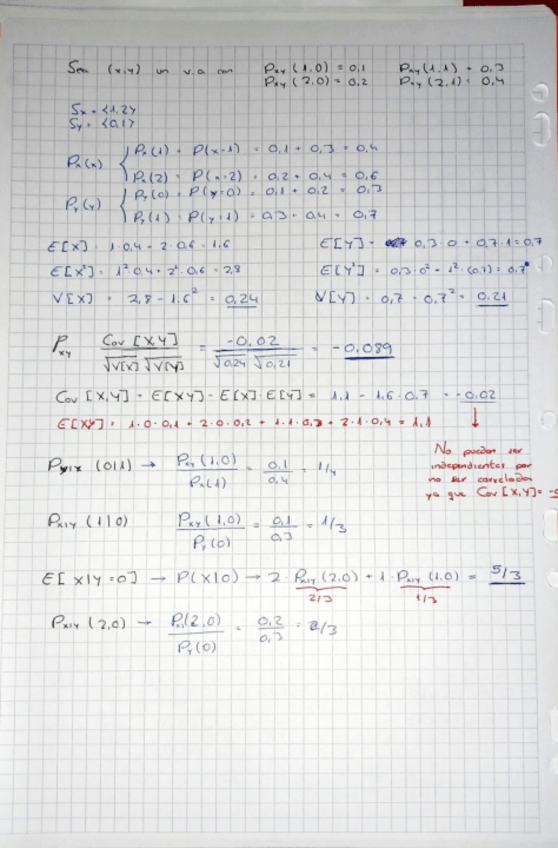 Sea (x,y) un v.a con Pxy (1,0) = 0,1 Pxy (1,1) = 0,3
Pxy (2,0) = 0,2 Pxy (2,1) = 0,4
Sx = {1,2}
Sy = {0,1}
Px(x) { Px(1) = P(x=1) = 0,1 + 0,3 = 0,4
Px(2) = P(x=2) = 0,2 + 0,4 = 0,6
Py(y) { Py(0) = P(y=0) = 0,1 + 0,2 = 0,3
Py(1) = P(y=1) = 0,3 + 0,4 = 0,7
E[X] = 1·0,4 + 2·0,6 = 1,6 E[Y] = 0,3·0 + 0,7·1 = 0,7
E[X²] = 1²·0,4 + 2²·0,6 = 2,8 E[Y²] = 0,3·0² + 1²·(0,7) = 0,7
V[X] = 2,8 - 1,6² = 0,24 V[Y] = 0,7 - 0,7² = 0,21
Pxy Cov [X,Y] / √V[X] √V[Y] = -0,02 / √0,24 √0,21 = -0,089
Cov [X,Y] = E[XY] - E[X]·E[Y] = 1,1 - 1,6·0,7 = -0,02
E[XY] = 1·0·0,1 + 2·0·0,2 + 1·1·0,3 + 2·1·0,4 = 1,1 ↓
No pueden ser
independientes por
no ser correlados
ya que Cov [X,Y] =
Py|x (0|1) → Pxy (1,0) / Px(1) = 0,1 / 0,4 = 1/4
Px|y (1|0) Pxy (1,0) / Py(0) = 0,1 / 0,3 = 1/3
E[x|y=0] → P(x|0) → 2·Px|y (2,0) + 1·Px|y (1,0) = 5/3
2/3 1/3
Px|y (2,0) → P(2,0) / Py(0) = 0,2 / 0,3 = 2/3